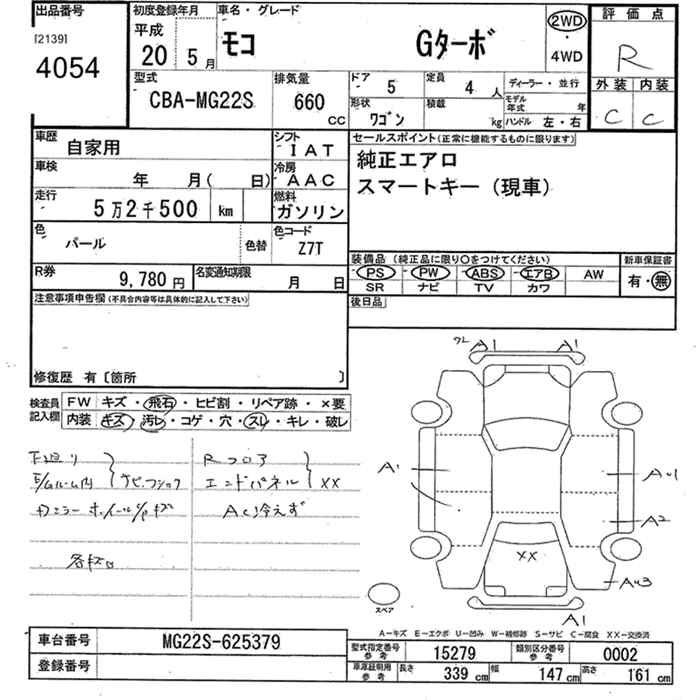 出品番号
[2139]
4054
初度登録年月
平成
20年 5月
車名・グレード
モコ Gターボ
2WD
・
4WD
評価点
R
外装 内装
C C
型式
CBA-MG22S
排気量
660 CC
ドア 5
定員 4人
ディーラー・並行
形状 ワゴン
積載 kg
モデル年式 年
ハンドル 左・右
車歴 自家用
シフト IAT
車検 年 月( 日)
冷房 AAC
走行 5万2千500 km
燃料 ガソリン
色 パール 色替
色コード Z7T
R券 9,780円
名変通知期限 月 日
セールスポイント(正常に機能するものに限ります)
純正エアロ
スマートキー(現車)
装備品 (純正品に限り○をつけてください)
新車保証書
PS PW ABS エアB AW
SR ナビ TV カワ
有・無
後日品
注意事項申告欄(不具合内容等は具体的に記入して下さい)
修復歴 有〔箇所 〕
検査員記入欄
FW キズ・飛石・ヒビ割・リペア跡・×要
内装 キズ・汚レ・コゲ・穴・スレ・キレ・破レ
下廻り
E/gルーム内 サビ・フショク
Rフロア
エンドパネル XX
カラー ホイール/P キズ
AC冷えず
ワレ A1 A1
A1
AU1
A2
XX
AU3
A1
スペア
A-キズ E-エクボ U-凹み W-補修跡 S-サビ C-腐食 XX-交換済
車台番号 MG22S-625379
登録番号
型式指定番号参考 15279
類別区分番号参考 0002
車庫証明用参考 長さ 339 cm 幅 147 cm 高さ 161 cm